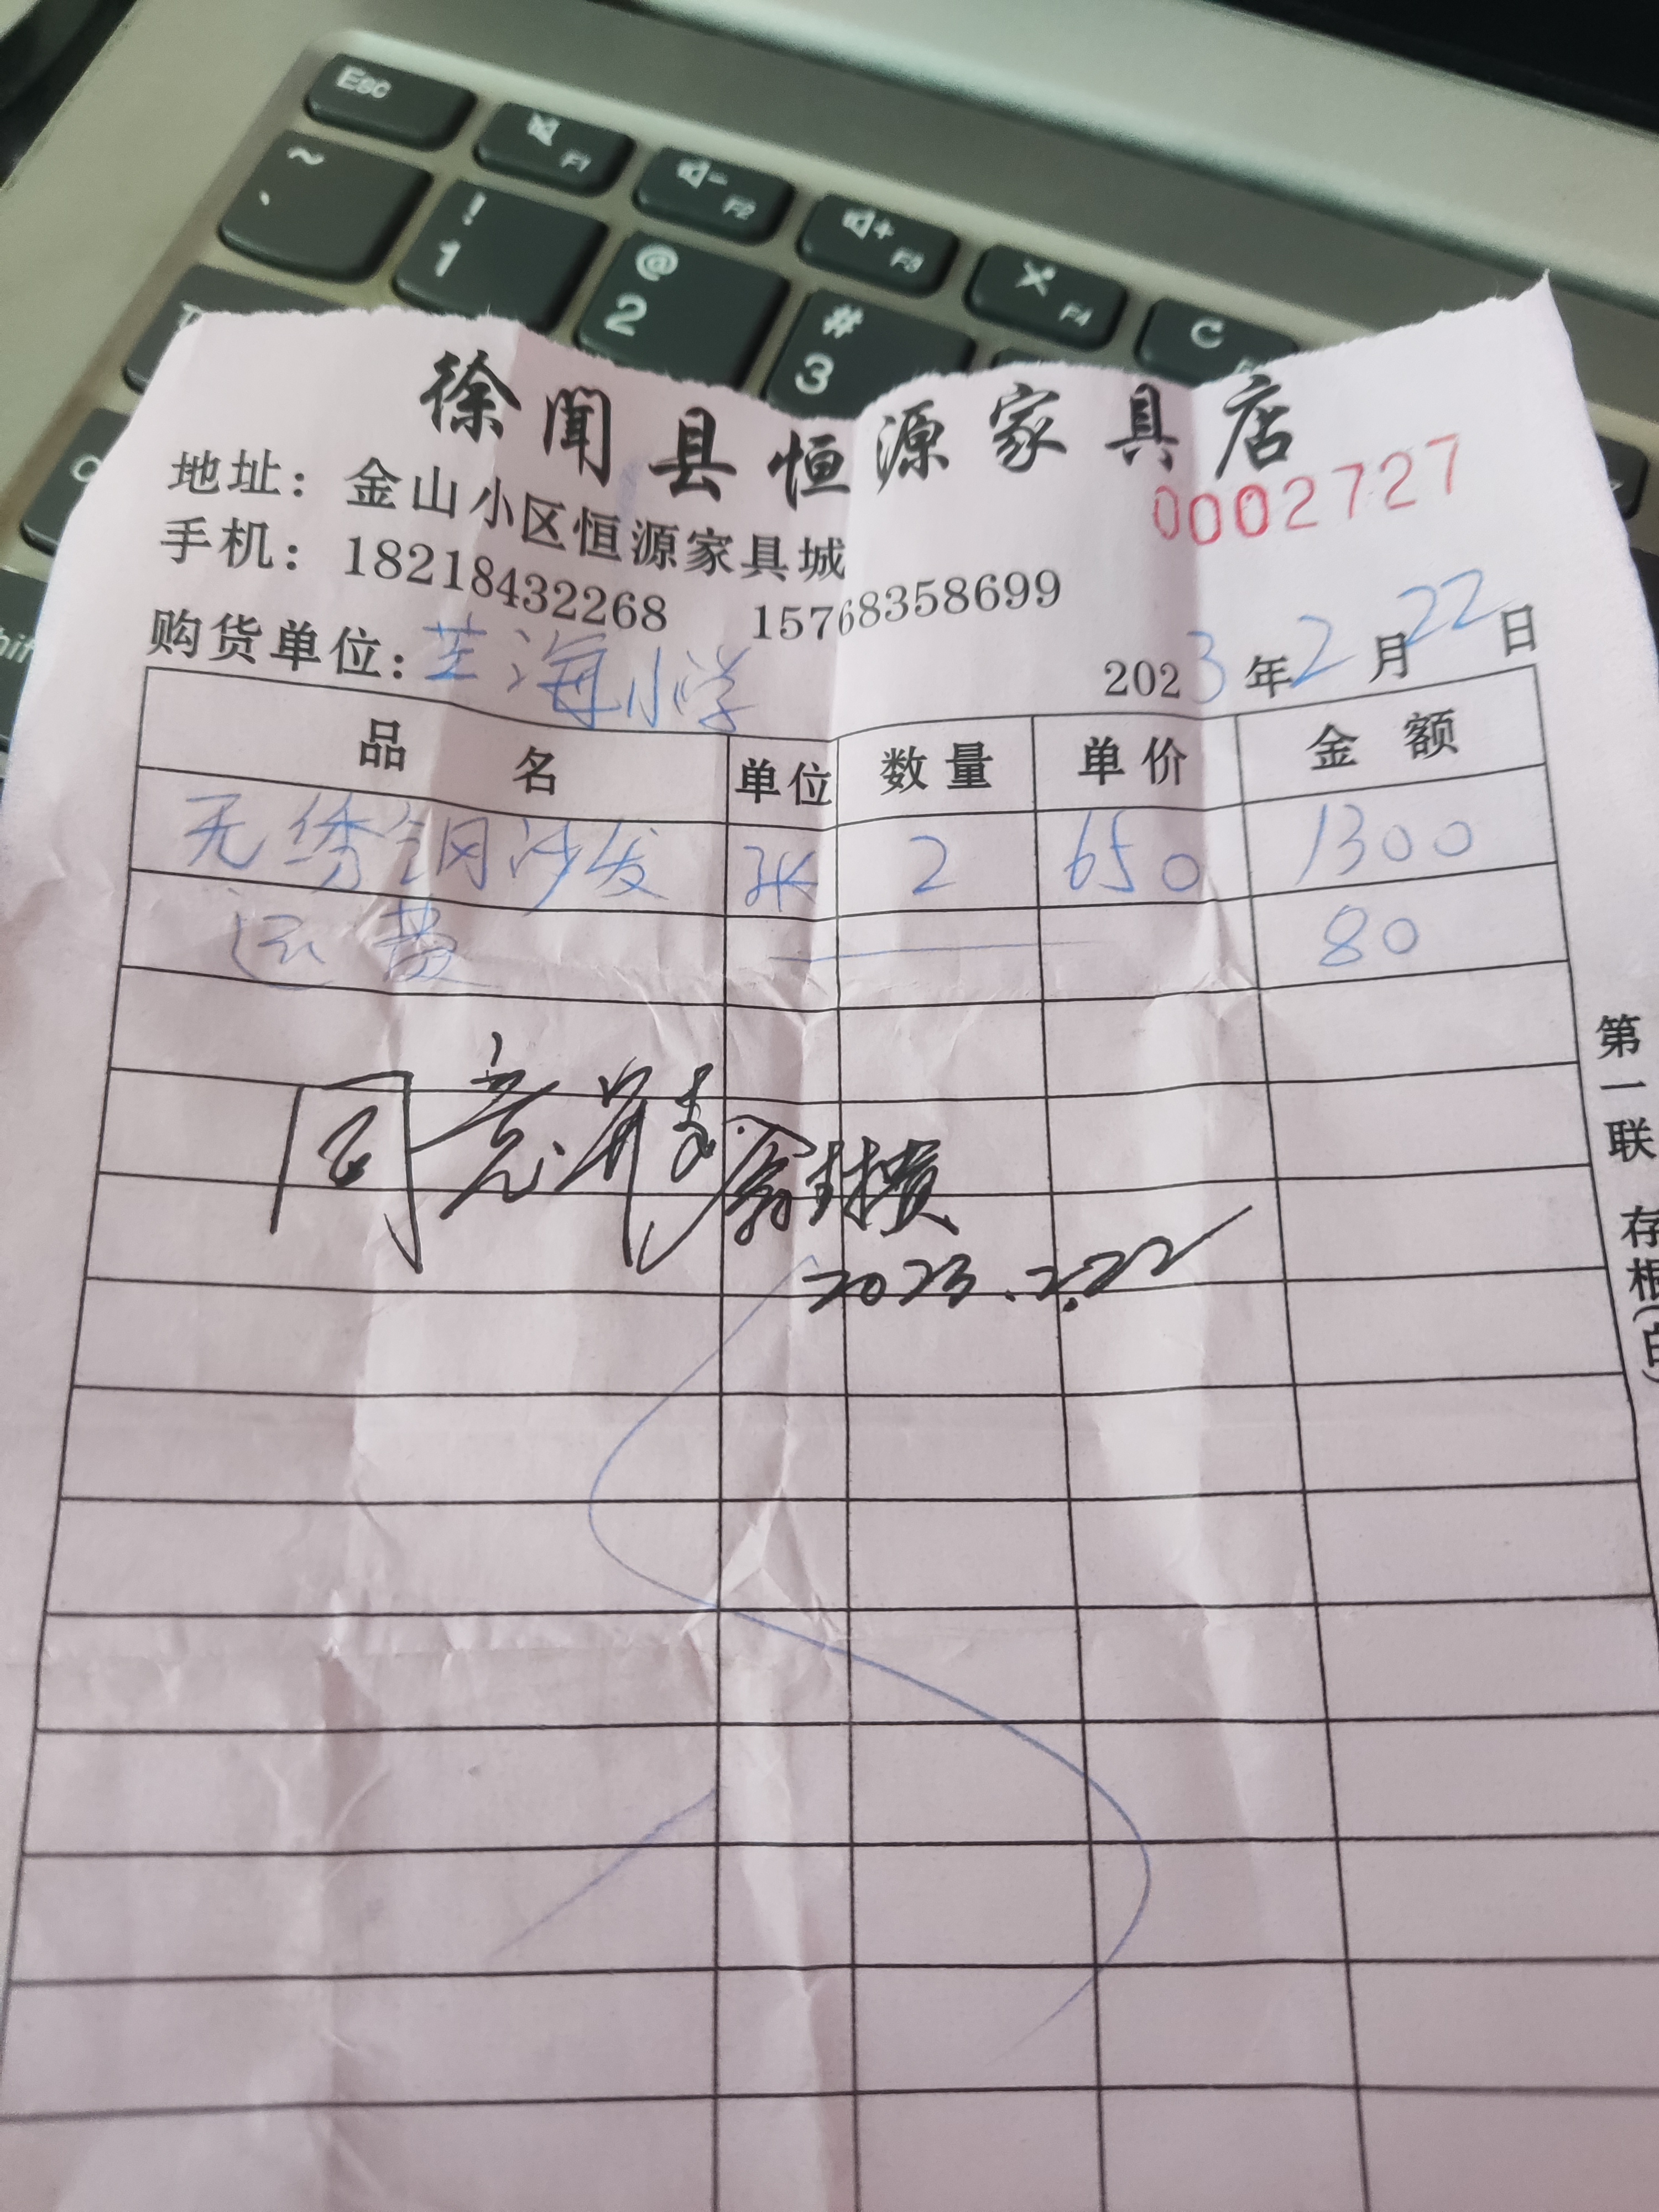 Esc
F1
F2
F3
F4
~
`
!
1
@
2
#
3
C
徐闻县恒源家具店
0002727
地址：金山小区恒源家具城
手机：18218432268 15768358699
购货单位：芒海小学 2023年2月22日
品名 单位 数量 单价 金额
无绣钢沙发 张 2 650 1300
运费 80
同意开支
2023.2.22
第一联 存根(白)